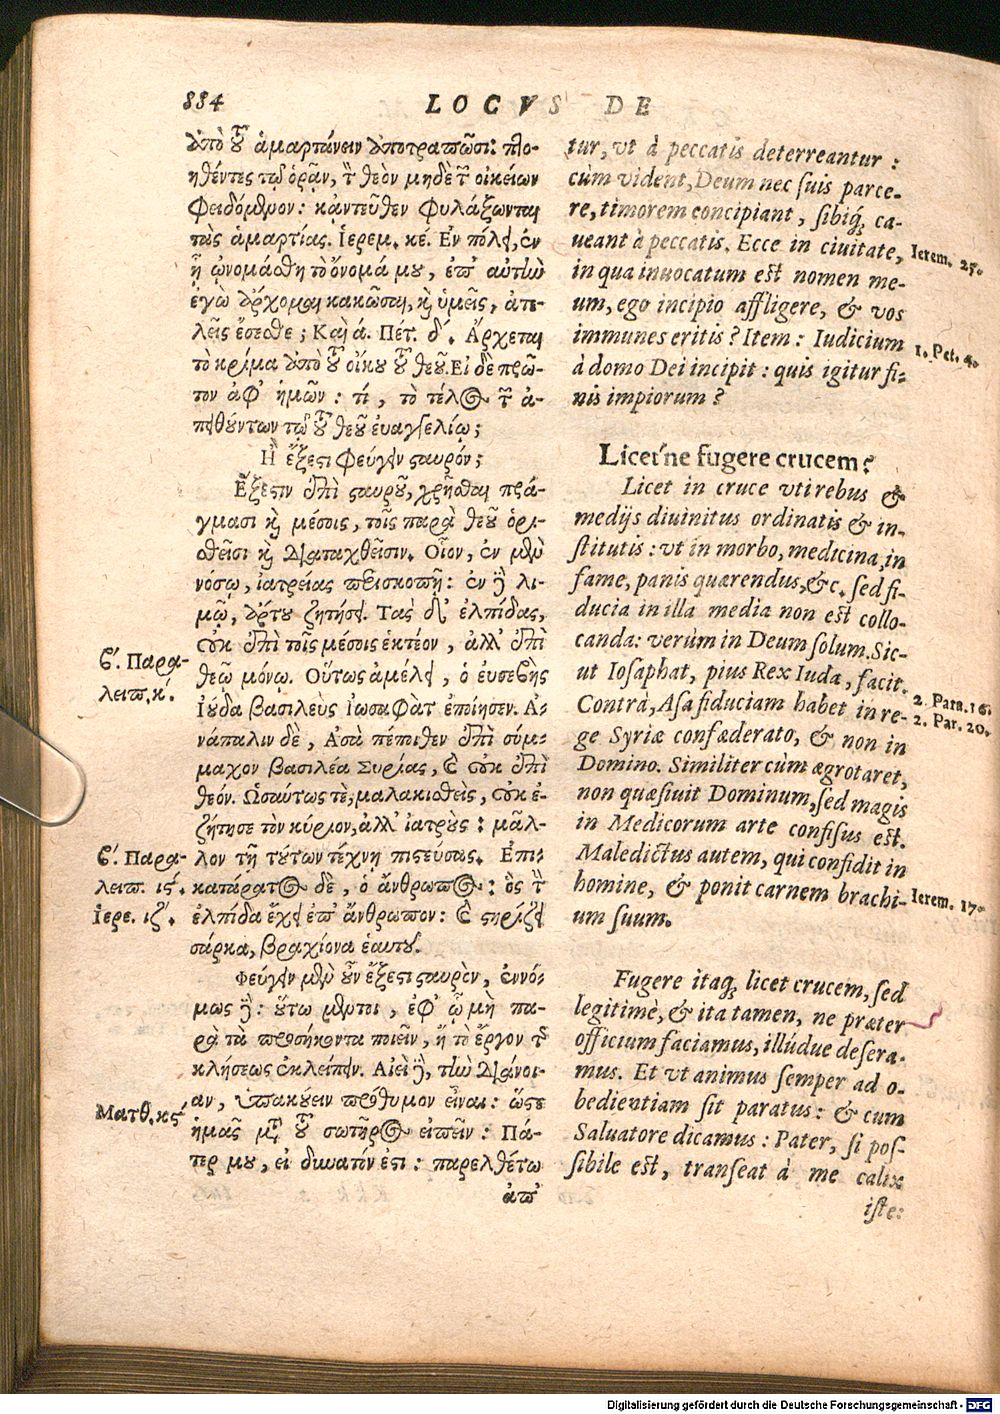 884
LOCVS DE
ἀπὸ τοῦ ἁμαρτάνειν ἀποτραπῶσι: πλο-
ηθέντες τῷ ὁρᾷν, τὸν θεὸν μηδὲ τῶν οἰκείων
φειδόμενον: κἀντεῦθεν φυλάξωνται
τὰς ἁμαρτίας. Ἱερεμ. κέ. Ἐν πόλει, ἐν
ᾗ ὠνομάσθη τὸ ὄνομά μου, ἐπ' αὐτὴν
ἐγὼ ἄρχομαι κακῶσαι, καὶ ὑμεῖς, ἀτε-
λεῖς ἔσεσθε; Καὶ ά. Πέτ. δ'. Ἄρχεται
τὸ κρίμα ἀπὸ τοῦ οἴκου τοῦ θεοῦ. Εἰ δὲ πρῶ-
τον ἀφ' ἡμῶν: τί, τὸ τέλος τῶν ἀ-
πειθούντων τῷ τοῦ θεοῦ ἐυαγγελίῳ;
Ἢ ἔξεστι φεύγειν σταυρόν;
Ἔξεστιν ἐπὶ σταυροῦ, χρῆσθαι πρά-
γμασι καὶ μέσοις, τοῖς παρὰ θεοῦ ὁρι-
σθεῖσι καὶ διαταχθεῖσιν. Οἷον, ἐν μὲν
νόσῳ, ἰατρείας ἐπισκοπῇ: ἐν δὲ λι-
μῷ, ἄρτου ζητήσει. Τὰς δὲ ἐλπίδας,
οὐκ ἐπὶ τοῖς μέσοις ἑκτέον, ἀλλ' ἐπὶ
θεῷ μόνῳ. Οὕτως ἀμέλει, ὁ ἐυσεβὴς
Ἰούδα βασιλεὺς Ἰωσαφὰτ ἐποίησεν. Ἀ-
νάπαλιν δὲ, Ἀσὰ πέποιθεν ἐπὶ σύμ-
μαχον βασιλέα Συρίας, καὶ οὐκ ἐπὶ
θεόν. Ὡσαύτως τε, μαλακισθεὶς, οὐκ ἐ-
ζήτησε τὸν κύριον, ἀλλ' ἰατροὺς: μᾶλ-
λον τῇ τούτων τέχνῃ πιστεύσας. Ἐπι-
κατάρατος δὲ, ὁ ἄνθρωπος: ὃς τὴν
ἐλπίδα ἔχει ἐπ' ἄνθρωπον: καὶ στηρίζει
σάρκα, βραχίονα ἑαυτοῦ.
Φεύγειν μὲν οὖν ἔξεστι σταυρὸν, ἐννό-
μως δὲ: οὕτω μέντοι, ἐφ' ᾧ μὴ πα-
ρὰ τὰ προσήκοντα ποιεῖν, ἢ τὸ ἔργον τῆς
κλήσεως ἐκλείπειν. Ἀιεὶ δὲ, τὴν διάνοι-
αν, ὑπακούειν πρόθυμον εἶναι: ὥστε
ἡμᾶς μετὰ τοῦ σωτῆρος εἰπεῖν: Πά-
τερ μου, εἰ δυνατόν ἐστι: παρελθέτω
ἀπ'
ϛ'. Παρα-
λειπ. κ'.
ϛ'. Παρα-
λειπ. ις'.
Ἱερε. ιζ'.
Ματθ. κς'
tur, vt à peccatis deterreantur:
cùm vident, Deum nec suis parce-
re, timorem concipiant, sibiq́; ca-
ueant à peccatis. Ecce in ciuitate,
in qua inuocatum est nomen me-
um, ego incipio affligere, & vos
immunes eritis? Item: Iudicium
à domo Dei incipit: quis igitur fi-
nis impiorum?
Licet'ne fugere crucem?
Licet in cruce vti rebus &
medijs diuinitus ordinatis & in-
stitutis: vt in morbo, medicina, in
fame, panis quærendus, &c. sed fi-
ducia in illa media non est collo-
canda: verùm in Deum solum. Sic-
ut Iosaphat, pius Rex Iuda, facit.
Contrà, Asa fiduciam habet in re-
ge Syriæ confæderato, & non in
Domino. Similiter cùm ægrotaret,
non quæsiuit Dominum, sed magis
in Medicorum arte confisus est.
Maledictus autem, qui confidit in
homine, & ponit carnem brachi-
um suum.
Fugere itaq́; licet crucem, sed
legitimè, & ita tamen, ne præter
officium faciamus, illúdue desera-
mus. Et vt animus semper ad o-
bedientiam sit paratus: & cum
Saluatore dicamus: Pater, si pos-
sibile est, transeat à me calix
iste:
Ierem. 25.
1. Pet. 4.
2. Para. 16.
2. Par. 20.
Ierem. 17.
Digitalisierung gefördert durch die Deutsche Forschungsgemeinschaft - DFG